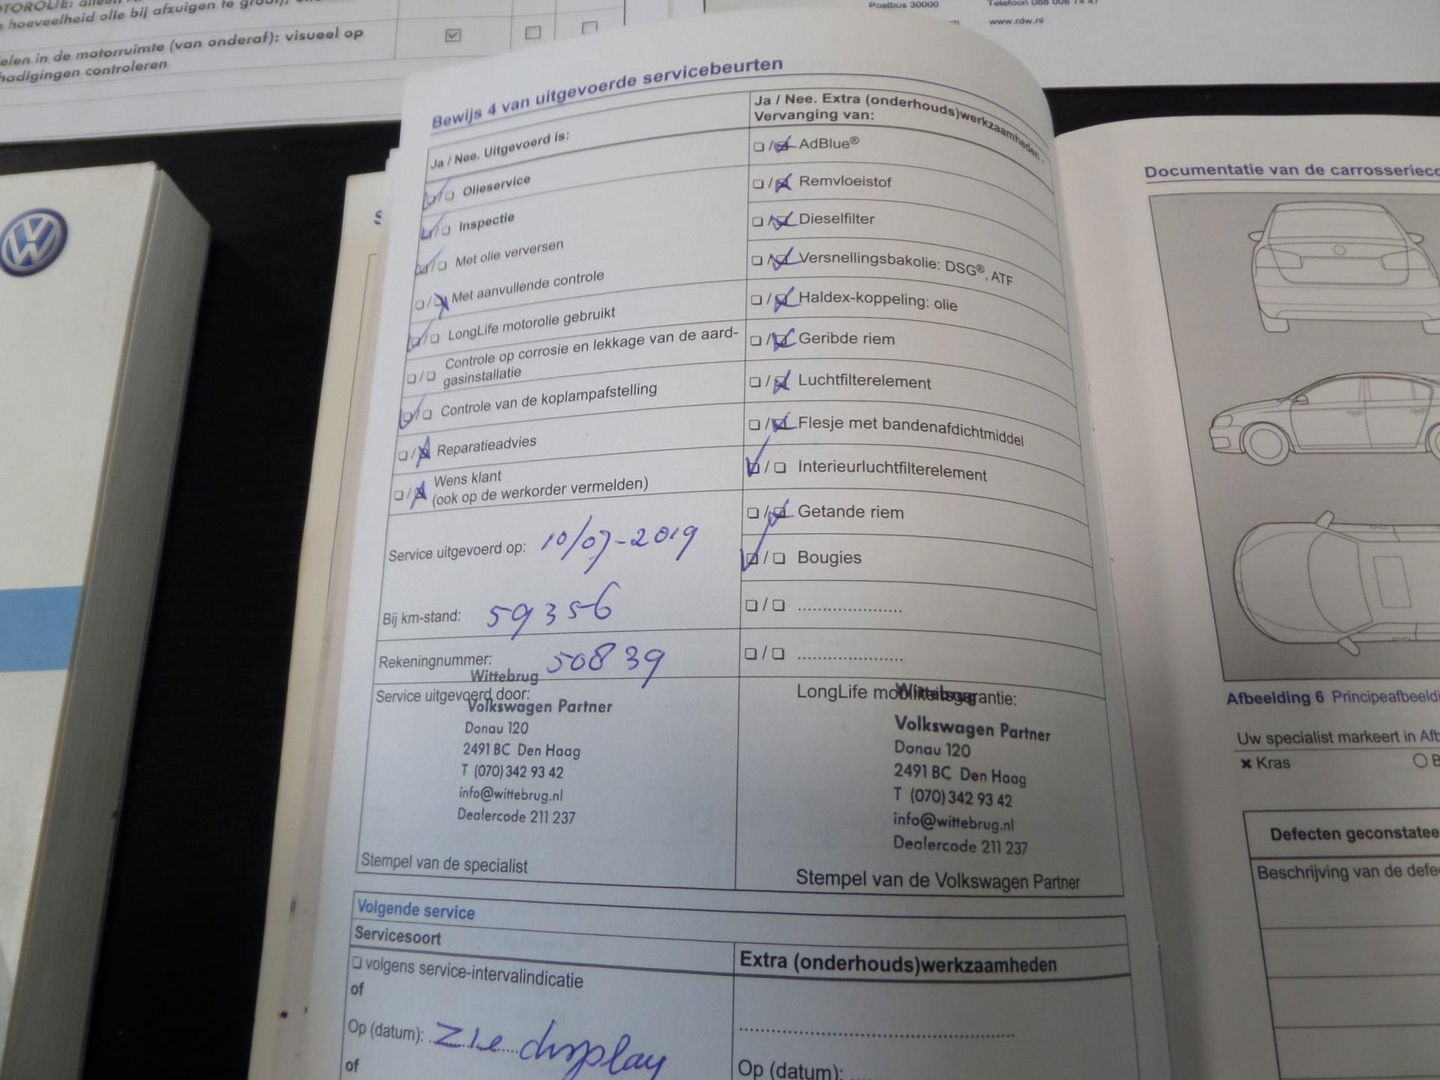 TOROLIE: alleen
hoeveelheid olie bij afzuigen te groot,
elen in de motorruimte (van onderaf): visueel op
hadigingen controleren
Postbus 30000
Telefoon 088 008 74 47
www.rdw.nl
Bewijs 4 van uitgevoerde servicebeurten
Ja / Nee. Uitgevoerd is:
Olieservice
Inspectie
Met olie verversen
Met aanvullende controle
LongLife motorolie gebruikt
Controle op corrosie en lekkage van de aard-
gasinstallatie
Controle van de koplampafstelling
Reparatieadvies
Wens klant
(ook op de werkorder vermelden)
Service uitgevoerd op: 10/07-2019
Bij km-stand: 59356
Rekeningnummer: 50839
Service uitgevoerd door:
Wittebrug
Volkswagen Partner
Donau 120
2491 BC Den Haag
T (070) 342 93 42
info@wittebrug.nl
Dealercode 211 237
Stempel van de specialist
Ja / Nee. Extra (onderhouds)werkzaamheden.
Vervanging van:
AdBlue®
Remvloeistof
Dieselfilter
Versnellingsbakolie: DSG®, ATF
Haldex-koppeling: olie
Geribde riem
Luchtfilterelement
Flesje met bandenafdichtmiddel
Interieurluchtfilterelement
Getande riem
Bougies
LongLife mobiliteitsgarantie:
Wittebrug
Volkswagen Partner
Donau 120
2491 BC Den Haag
T (070) 342 93 42
info@wittebrug.nl
Dealercode 211 237
Stempel van de Volkswagen Partner
Volgende service
Servicesoort
volgens service-intervalindicatie
of
Op (datum): zie display
of
Extra (onderhouds)werkzaamheden
Op (datum):
Documentatie van de carrosseriec
Afbeelding 6 Principeafbeeldi
Uw specialist markeert in Afb
× Kras
B
Defecten geconstatee
Beschrijving van de defe